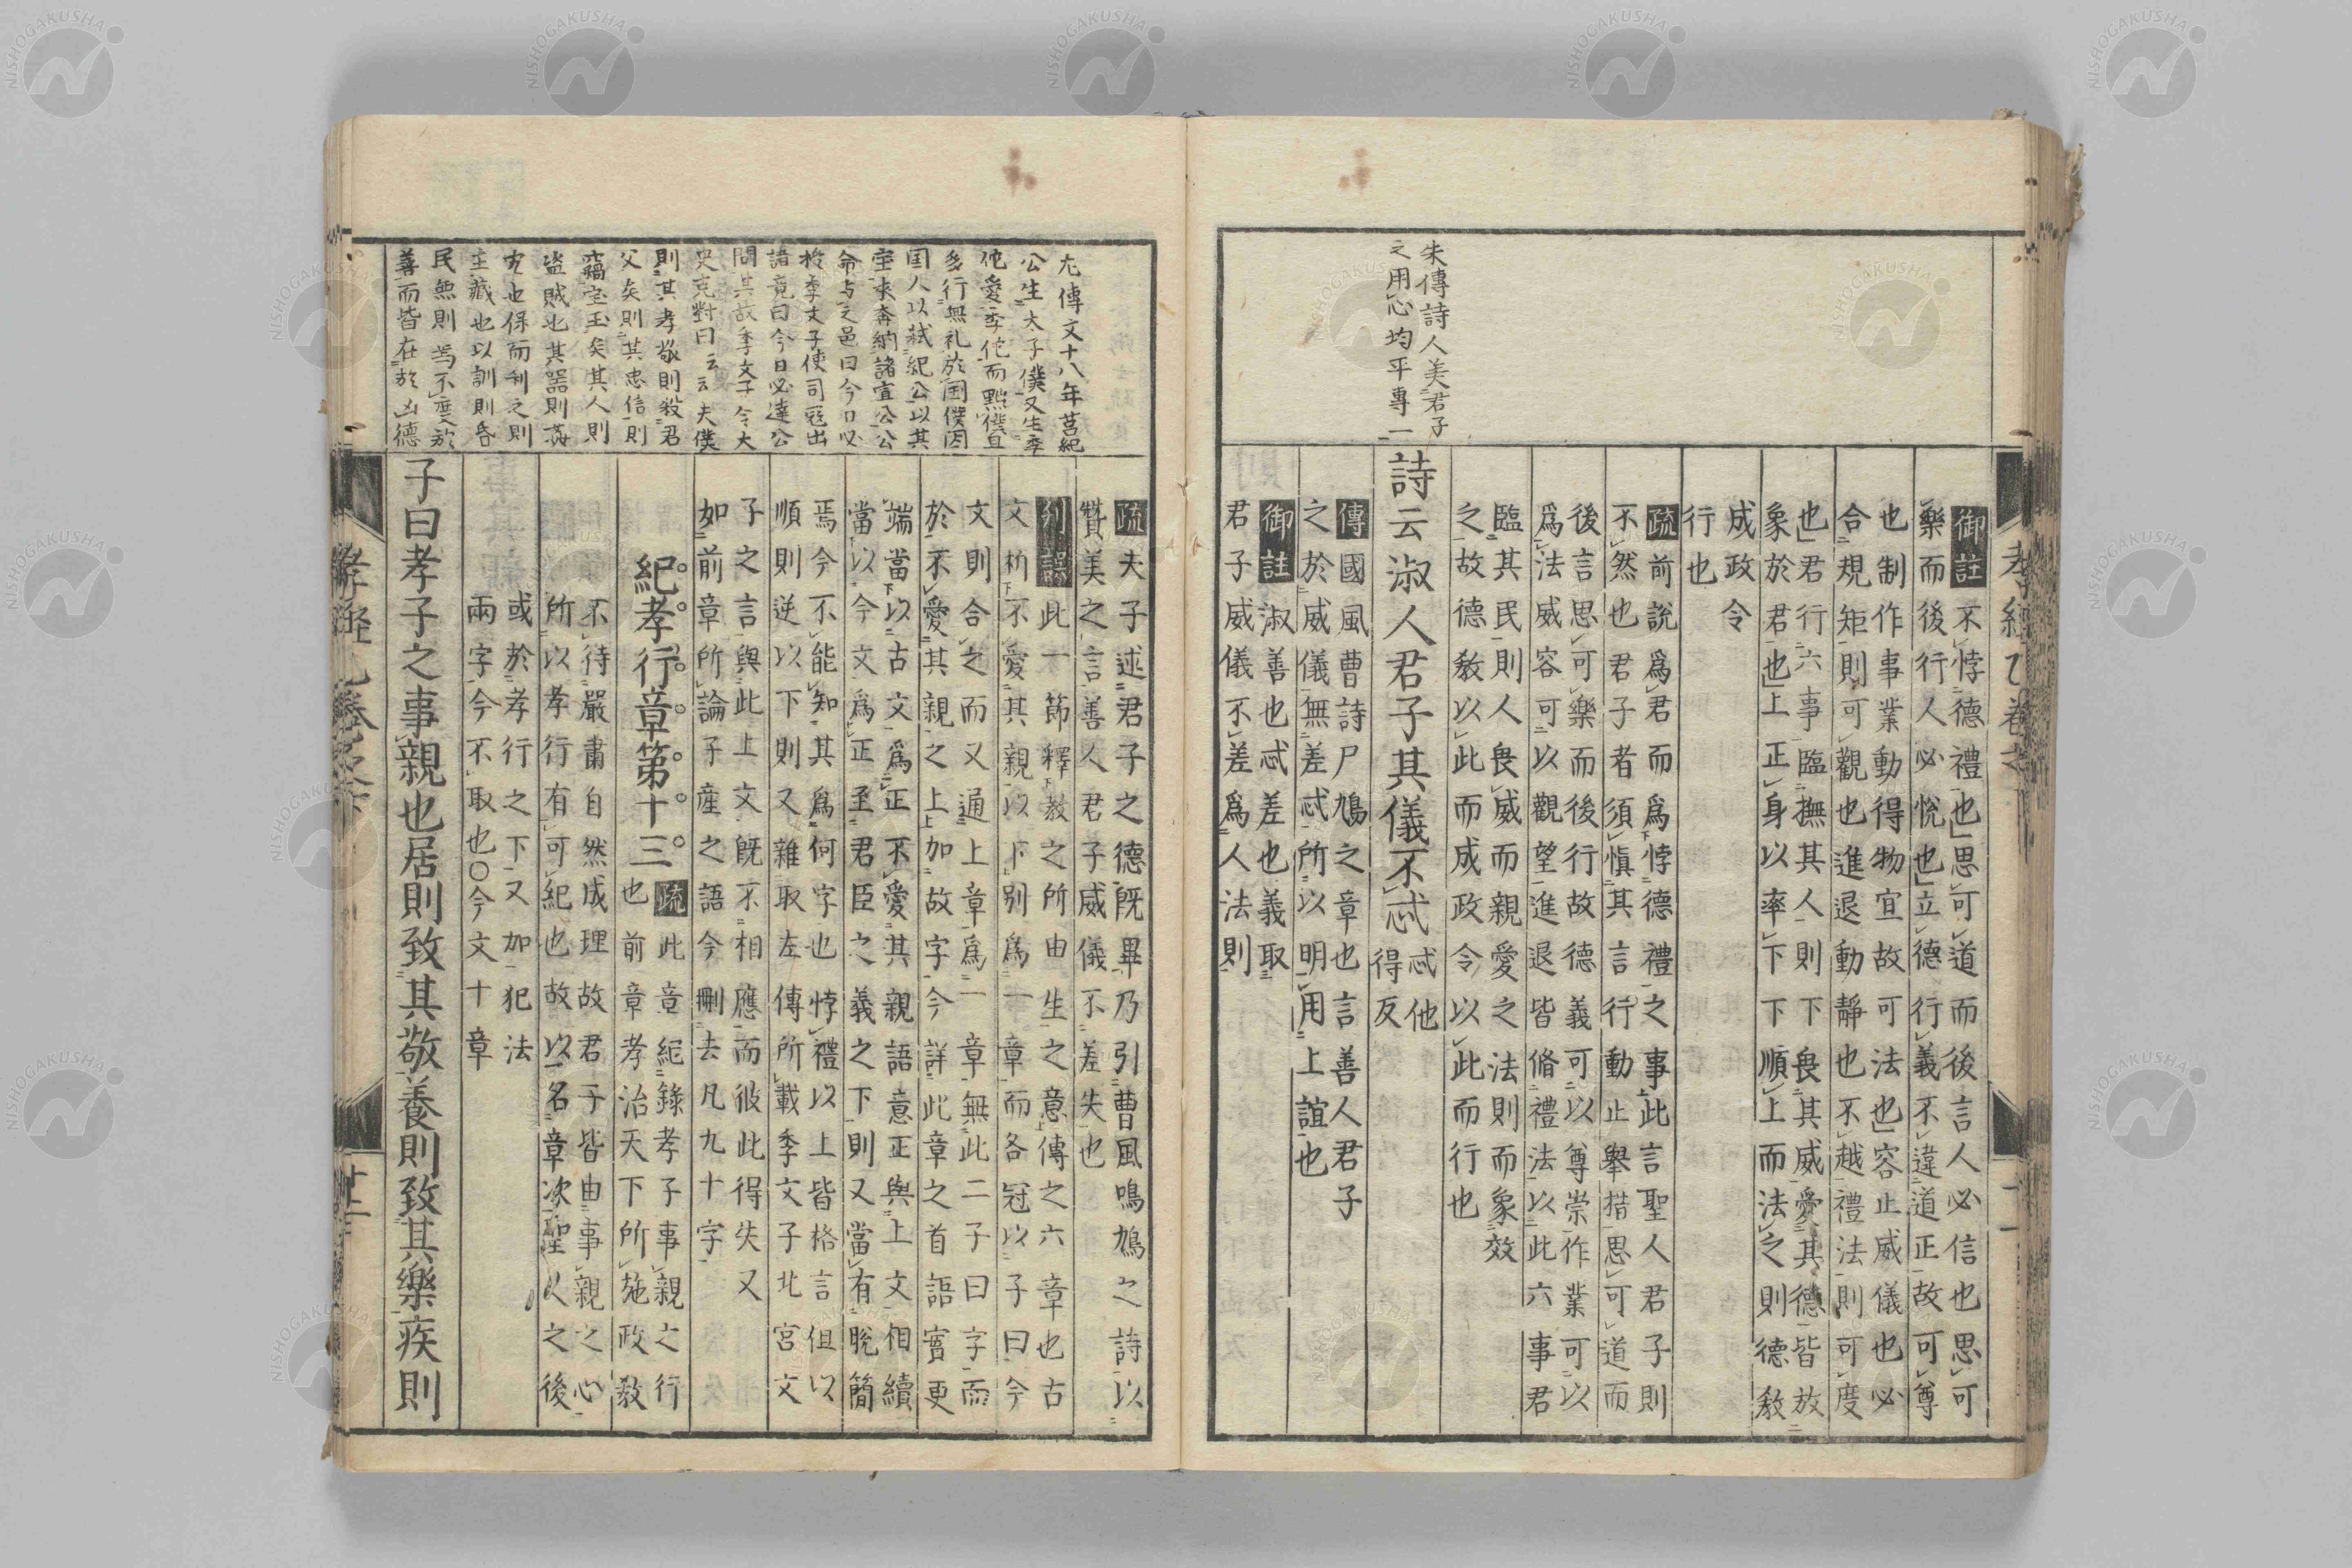 朱傳詩人美君子
之用心均平專一
御註不悖德禮也思可道而後言人必信也思可
樂而後行人必悅也立德行義不違道正故可尊
也制作事業動得物宜故可法也容止威儀也必
合規矩則可觀也進退動靜也不越禮法則可度
也君行六事臨撫其人則下畏其威愛其德皆放
象於君也上正身以率下下順上而法之則德教
成政令
行也
疏前說爲君而爲悖德禮之事此言聖人君子則
不然也君子者須愼其言行動止舉措思可道而
後言思可樂而後行故德義可以尊崇作業可以
爲法威容可以觀望進退皆脩禮法以此六事君
臨其民則人畏威而親愛之法則而象效
之故德教以此而成政令以此而行也
詩云淑人君子其儀不忒
忒他
得反
傳國風曹詩尸鳩之章也言善人君子
之於威儀無差忒所以明用上誼也
御註淑善也忒差也義取
君子威儀不差爲人法則
孝經
左傳文十八年莒紀
公生太子僕又生季
佗愛季佗而黜僕且
多行無礼於国僕因
国人以弑紀公以其
宝來奔納諸宣公公
命与之邑曰今日必
授季文子使司寇出
諸竟曰今日必達公
問其故季文子令大
史克對曰云云夫僕
則其孝敬則殺君
父矣則其忠信則
竊宝玉矣其人則
盜賊也其器則姦
兆也保而利之則
主藏也以訓則昏
民無則焉不度於
善而皆在於凶德
疏夫子述君子之德旣畢乃引曹風鳴鳩之詩以
贊美之言善人君子威儀不差失也
刊誤此一節釋教之所由生之意傳之六章也古
文析不愛其親以下別爲一章而各冠以子曰今
文則合之而又通上章爲一章無此二子曰字而
於不愛其親之上加故字今詳此章之首語實更
端當以古文爲正不愛其親語意正與上文相續
當以今文爲正至君臣之義之下則又當有脫簡
焉今不能知其爲何字也悖禮以上皆格言但以
順則逆以下則又雜取左傳所載季文子北宮文
子之言與此上文旣不相應而彼此得失又
如前章所論子產之語今刪去凡九十字
紀孝行章第十三
疏此章紀錄孝子事親之行
也前章孝治天下所施政教
不待嚴肅自然成理故君子皆由事親之心
所以孝行有可紀也故以名章次聖人之後
或於孝行之下又加犯法
兩字今不取也○今文十章
子曰孝子之事親也居則致其敬養則致其樂疾則